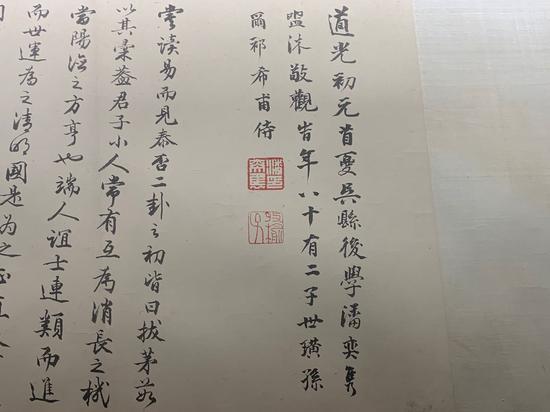 道光初元首夏吳縣後學潘奕雋
盥沐敬觀旹年八十有二子世璜孫
爾祁希甫侍
嘗读易而見泰否二卦之初皆曰拔茅茹
以其彙蓋君子小人常有互為消長之機
當陽浴之方亨也端人誼士連類而進
而世運為之清明國是為之正